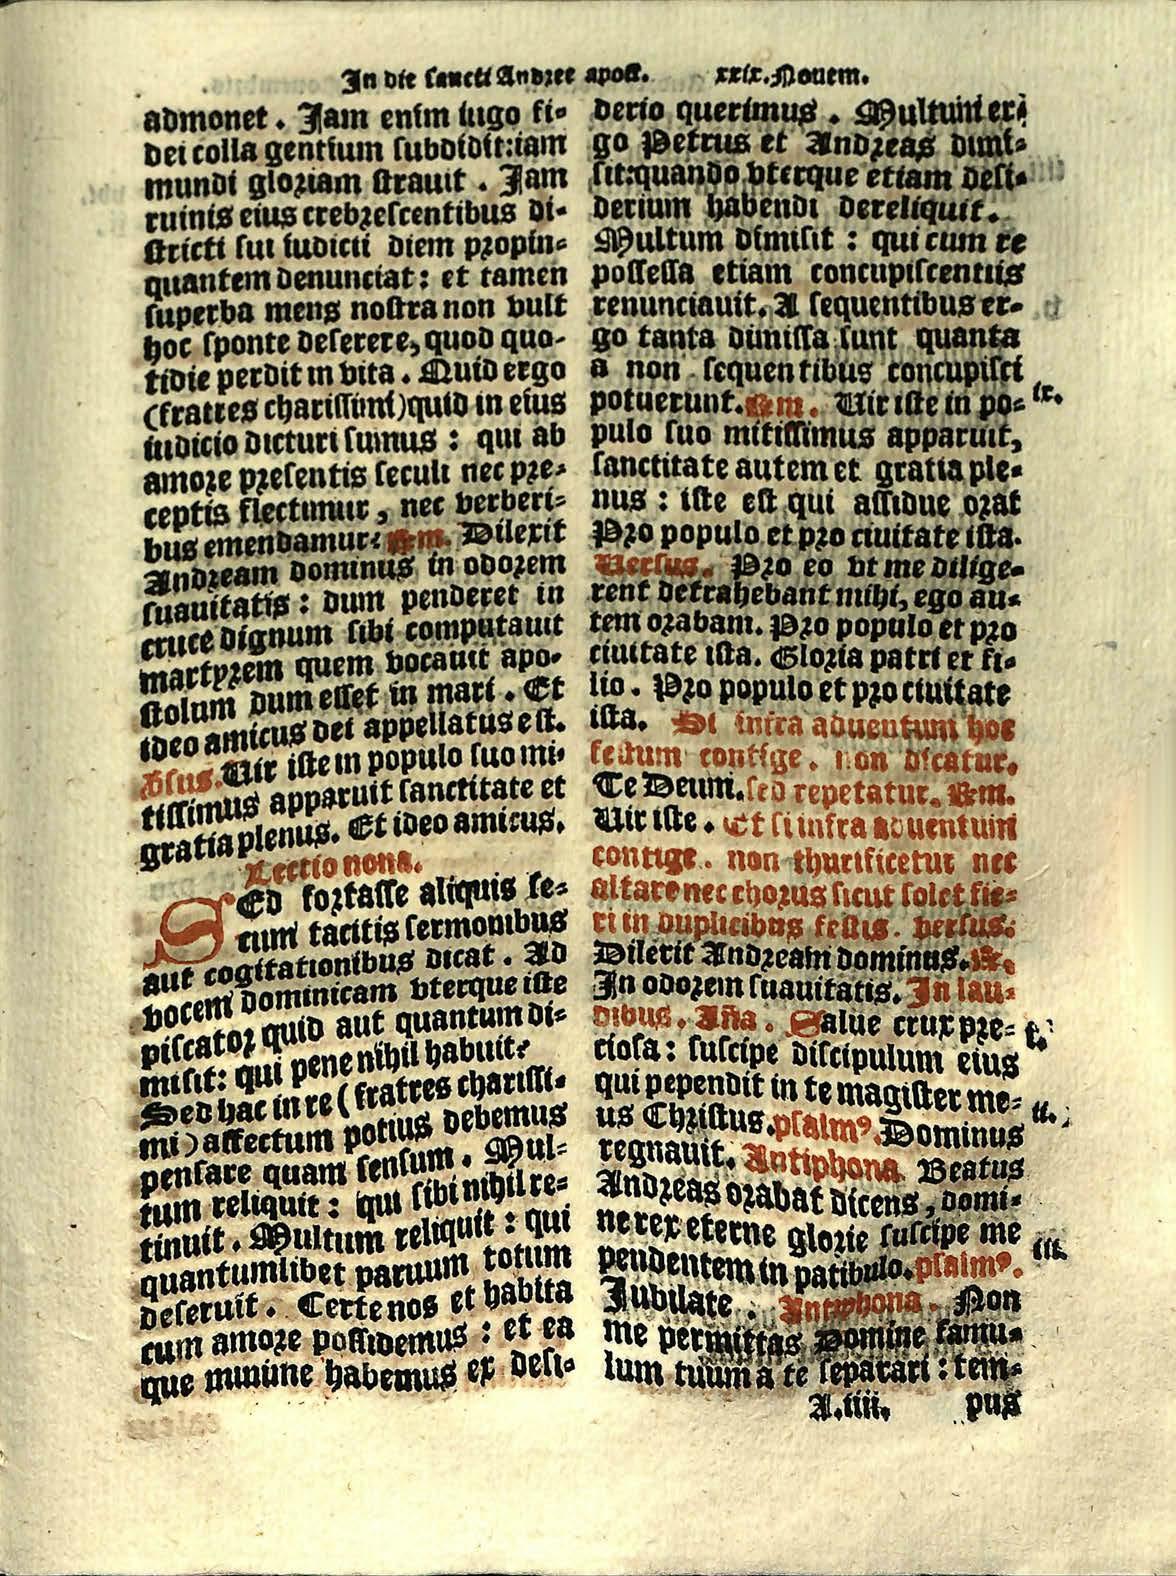 In die sancti Andree apost. xxix. Nouem.
admonet. Jam enim iugo fi-
dei colla gentium subdidit:iam
mundi gloriam strauit. Jam
ruinis eius crebrescentibus di-
stricti sui iudicii diem propin-
quantem denunciat: et tamen
superba mens nostra non vult
hoc sponte deserere, quod quo-
tidie perdit in vita. Quid ergo
(fratres charissimi) quid in eius
iudicio dicturi sumus: qui ab
amore presentis seculi nec pre-
ceptis flectimur, nec verberi-
bus emendamur? ℟m. Dilexit
Andream dominus in odorem
suauitatis: dum penderet in
cruce dignum sibi computauit
martyrem quem vocauit apo-
stolum dum esset in mari. Et
ideo amicus dei appellatus est.
Vsus. Uir iste in populo suo mi-
tissimus apparuit sanctitate et
gratia plenus. Et ideo amicus.
Lectio nona.
SEd fortasse aliquis se-
cum tacitis sermonibus
aut cogitationibus dicat. Ad
vocem dominicam vterque iste
piscator quid aut quantum di-
misit: qui pene nihil habuit?
Sed hac in re (fratres charissi-
mi) affectum potius debemus
pensare quam sensum. Mul-
tum reliquit: qui sibi nihil re-
tinuit. Multum reliquit: qui
quantumlibet paruum totum
deseruit. Certe nos et habita
cum amore possidemus: et ea
que minime habemus ex desi-
derio querimus. Multum er-
go Petrus et Andreas dimi-
sit:quando vterque etiam desi-
derium habendi dereliquit.
Multum dimisit: qui cum re
possessa etiam concupiscentiis
renunciauit. A sequentibus er-
go tanta dimissa sunt quanta
a non sequentibus concupisci
potuerunt. ℟m. Uir iste in po- ix.
pulo suo mitissimus apparuit,
sanctitate autem et gratia ple-
nus: iste est qui assidue orat
Pro populo et pro ciuitate ista.
Versus. Pro eo vt me dilige-
rent detrahebant mihi, ego au-
tem orabam. Pro populo et pro
ciuitate ista. Gloria patri et fi-
lio. Pro populo et pro ciuitate
ista. Si infra aduentum hoc
festum contige. non dicatur.
Te Deum. sed repetatur. ℟m.
Uir iste. Et si infra aduentum
contige. non thurificetur nec
altare nec chorus sicut solet fie-
ri in duplicibus festis. versus.
Dilexit Andream dominus. ℟.
In odorem suauitatis. In lau-
dibus. Aña. Salue crux pre- i.
ciosa: suscipe discipulum eius
qui pependit in te magister me-
us Christus. psalmꝰ. Dominus ii.
regnauit. Antiphona Beatus
Andreas orabat dicens, domi-
ne rex eterne glorie suscipe me
pendentem in patibulo. psalmꝰ. iii.
Jubilate. Antiphona. Non
me permittas Domine famu-
lum tuum a te separari: tem-
A.iiii. pus